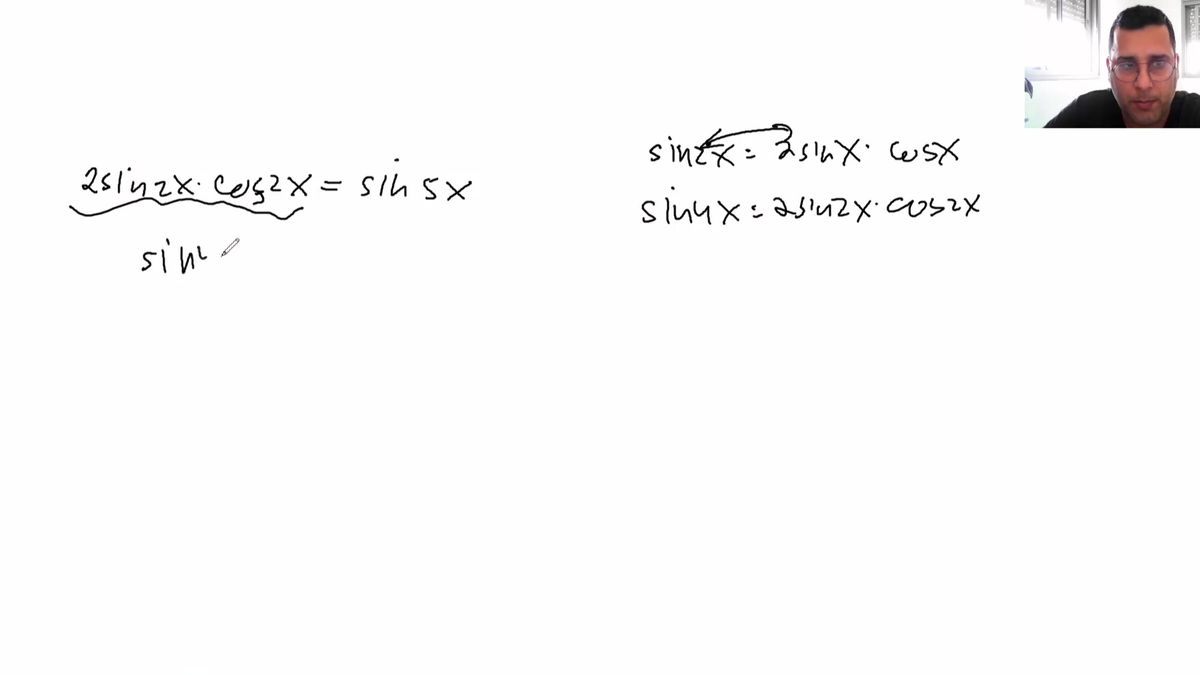 2sin2x · cos2x = sin 5x
sin
sin2x = 2sinx · cosx
sin4x = 2sin2x · cos2x